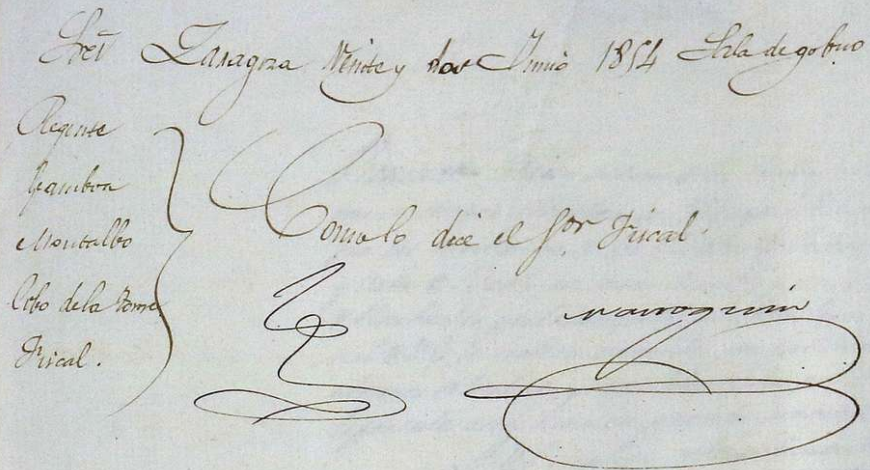 Sres Zaragoza Veinte y dos Junio 1854 Sala de gobno
Regente
Gamboa
Montalbo
Cobo de la Torre
Fiscal.
Como lo dice el Sor Fiscal.
Marroquin